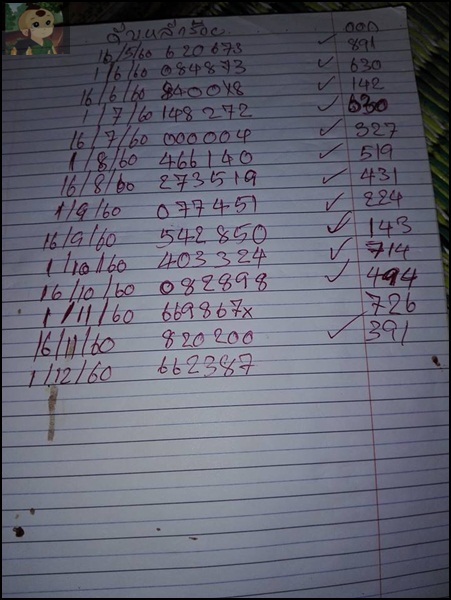 สิบหลักร้อย 000
16/5/60 620673 ✓ 891
1/6/60 084873 ✓ 630
16/6/60 840048 ✓ 142
1/7/60 148272 ✓ 630
16/7/60 000004 ✓ 327
1/8/60 466140 ✓ 519
16/8/60 273519 ✓ 431
1/9/60 077451 ✓ 224
16/9/60 542850 ✓ 143
1/10/60 403324 ✓ 714
16/10/60 082898 ✓ 494
1/11/60 669867x 726
16/11/60 820200 ✓ 391
1/12/60 662387